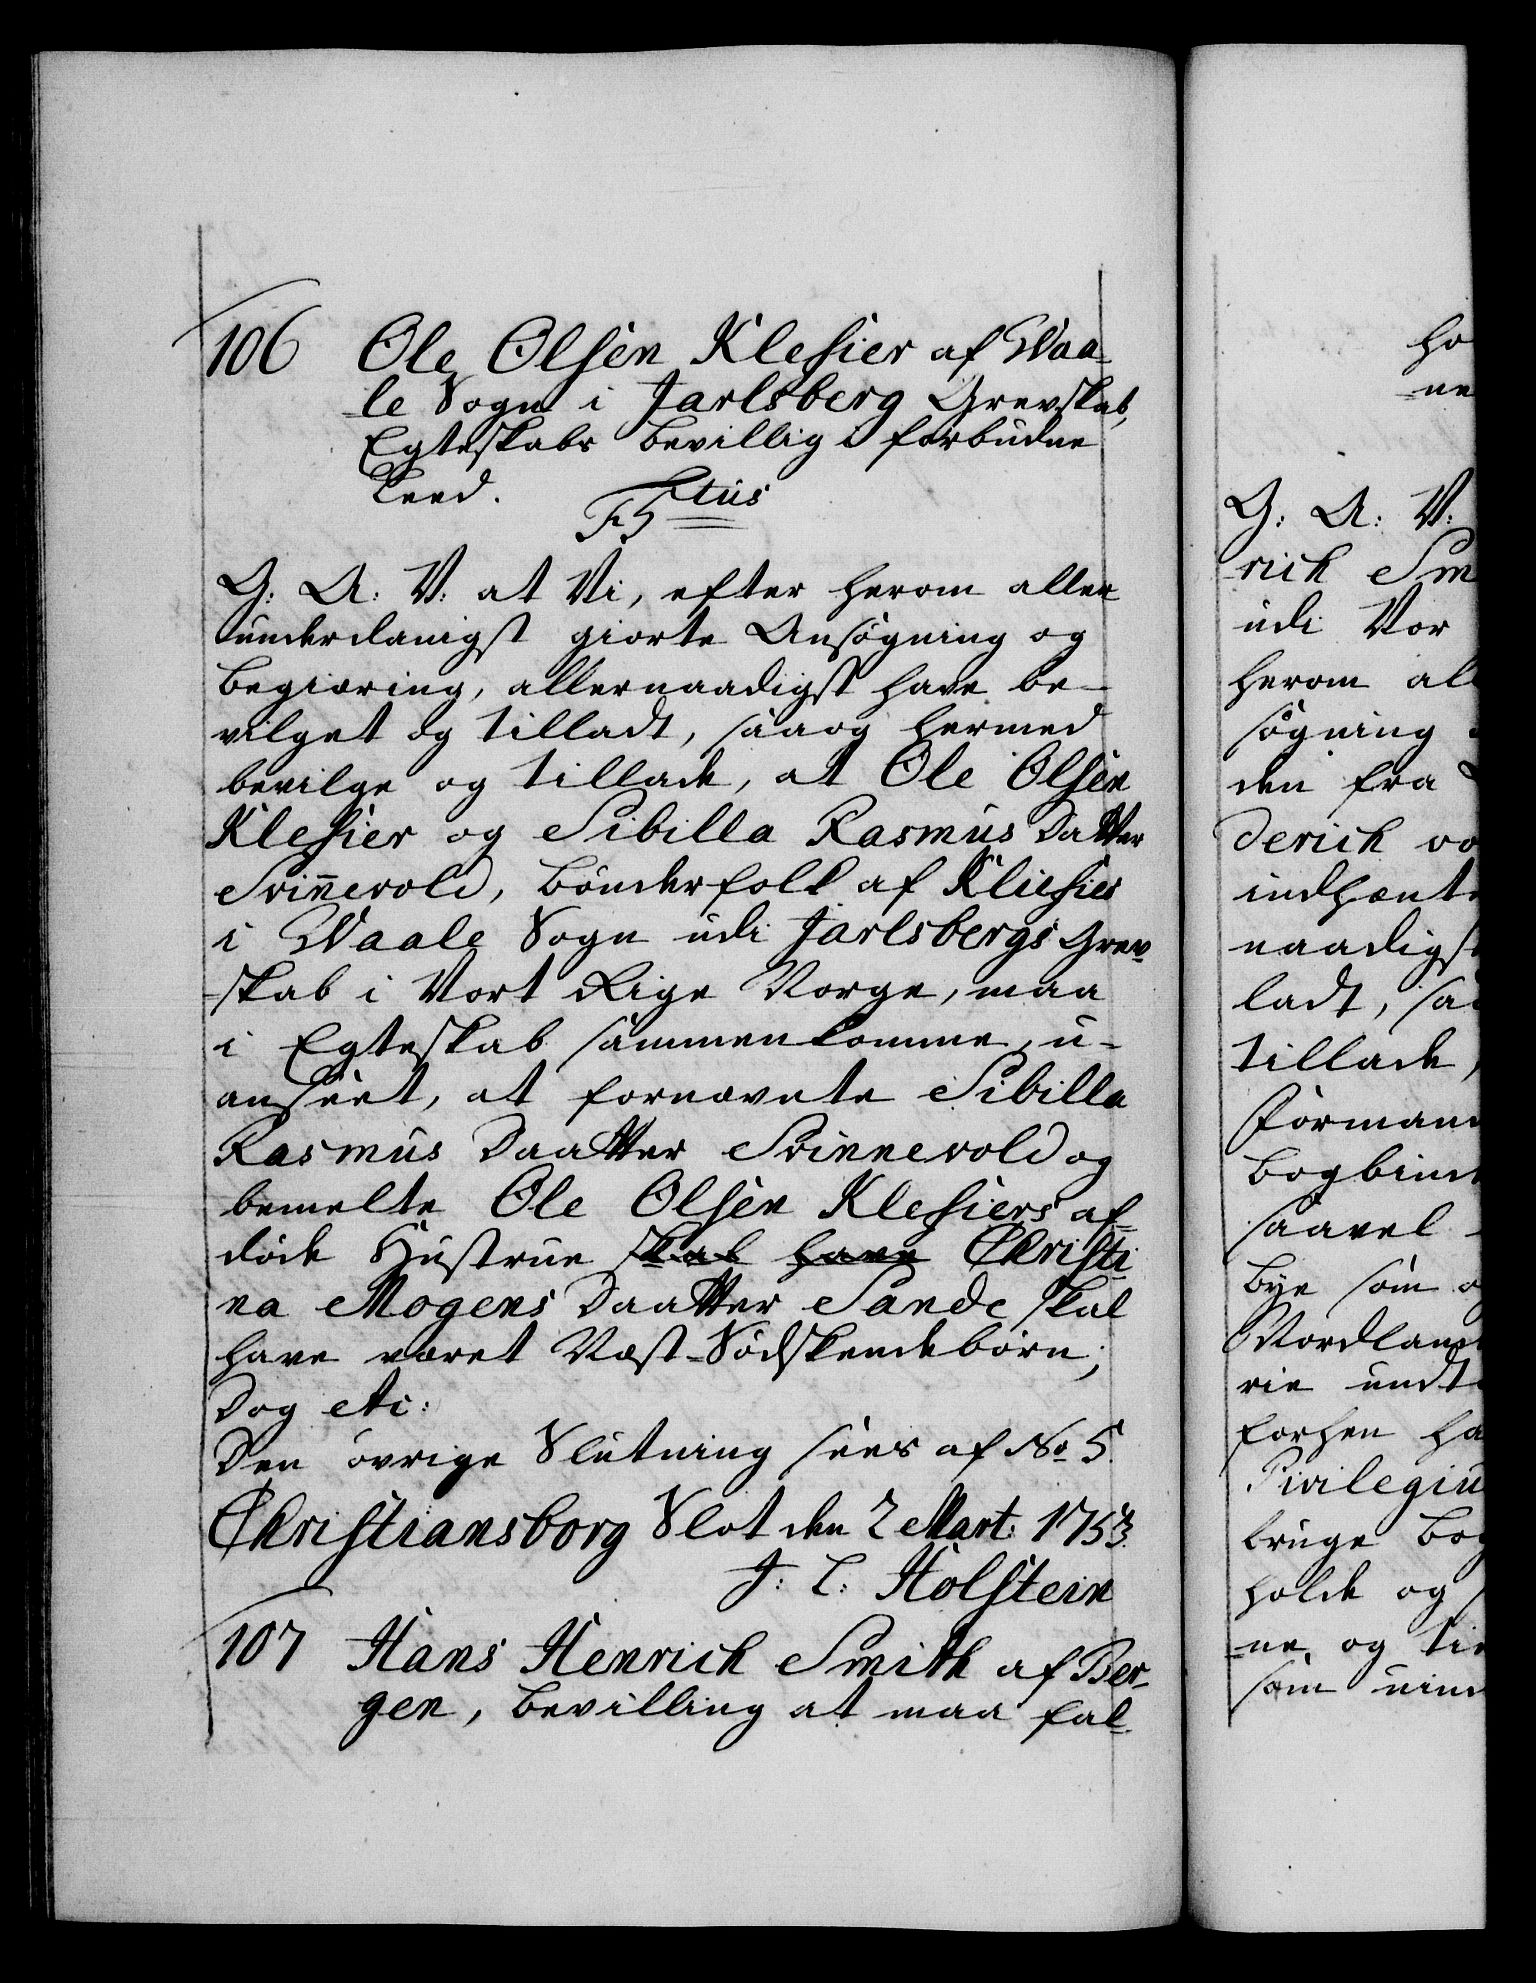 106 Ole Olsen Klefier af Waa-
-le Sogn i Jarlsberg Grevskab,
Egteskabs Bevillig i forbudne
Leed.
F5tus
G: A: V: at Vi, efter herom aller
underdanigst giorte Ansøgning og
Begiæring, allernaadigst have be-
vilget og tilladt, saa og hermed
bevilge og tillade, at Ole Olsen
Klefier og Sibilla Rasmus Datter
Svinnevold, Bønderfolk af Kliefier
i Waale Sogn udi Jarlsbergs Grev-
-skab i Vort Rige Norge, maa
i Egteskab sammenkomme, u-
anseet, at fornævnte Sibilla
Rasmus Daatter Svinnevold og
bemelte Ole Olsen Klefiers af-
døde Hustrue skal have Christi
na Mogens Daatter Sande skal
have været Næst-Sødskendebørn;
Dog etc:
Den øvrige Slutning sees af No 5.
Christiansborg Slot den 2 Mart: 1753.
J: L: Holstein
107 Hans Henrich Smith af Ber-
gen, Bevilling at maa fal-
ho
-ne
G: A: V:
-rich Sm
udi Vor
herom al
søgning
den fra
derich vo
indhænte
naadigst
ladt, saa
tillade,
Formand
Bogbind
saavel
Bye som o
Nordland
rie undt
forhen ha
Privilegiu
bruge Bog
holde og
-ne og tie
som uind